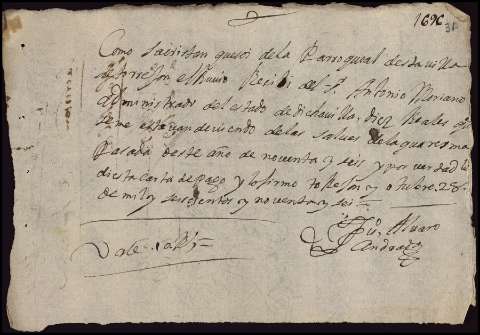 1696
Como sacristan que soi de la Parroquial desta villa
de Torrejon el Ruvio Recivi del Sr. Antonio Moriano
administrador del estado de dicha villa, diez Reales que
se me estavan deviendo de las salves de la quaresma
Pasada deste año de noventa y seis y por verdad di
esta carta de pago y lo firmo to Rejon y otubre 28
de mil y seiscientos y noventa y seis
Alvaro
Andrada
Vale 10 Rs